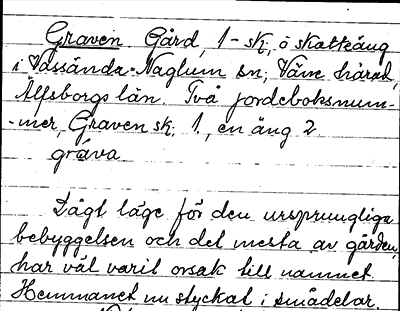 Graven. Gård, 1 - sk., ö skatteäng
i Vassända-Naglum sn; Väne härad,
Älfsborgs län. Två jordeboksnum-
-mer, Graven sk. 1, en äng 2.
gráva
Lågt läge för den ursprungliga
bebyggelsen och det mesta av gården,
har väl varit orsak till namnet.
Hemmanet nu styckat i smådelar.